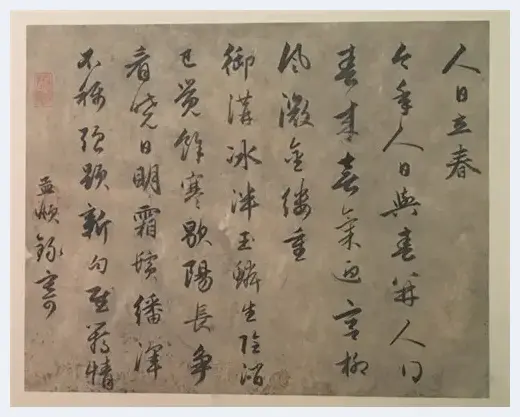 人日立春
今年人日與春并人得
春來喜氣迎宮柳
風微金縷重
御溝冰泮玉鱗生陰消
已覺餘寒歇陽長爭
看曉日明霜鬢繙渾
不稱强題新句慰羇情
孟頫録寄